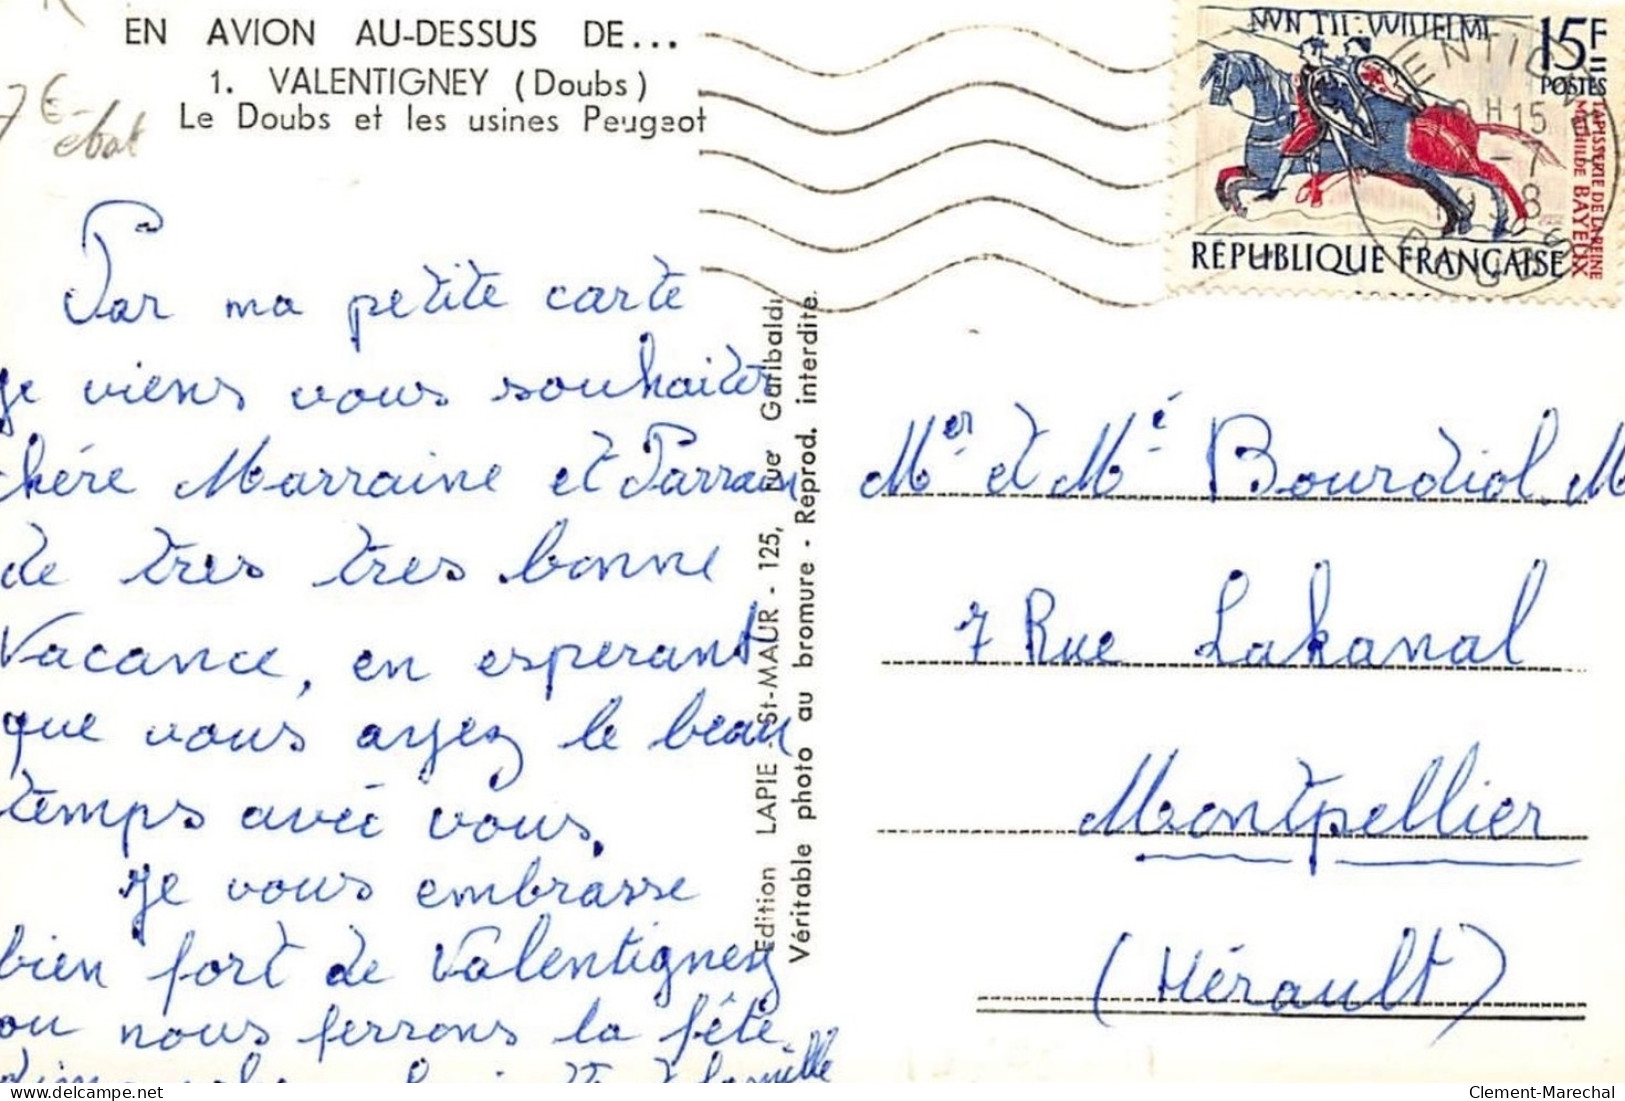 EN AVION AU-DESSUS DE...
1. VALENTIGNEY (Doubs)
Le Doubs et les usines Peugeot
7€
Par ma petite carte
je viens vous souhaiter
chére Marraine et Parrain
de tres tres bonne
Vacance, en esperant
que vous ayez le beau
temps avec vous.
Je vous embrasse
bien fort de Valentigney
ou nous ferrons la fête
famille
Edition LAPIE - St-MAUR - 125, rue Garibaldi
Véritable photo au bromure - Reprod. interdite.
NVN TII: WILIELMI
15F
POSTES
TAPISSERIE DE LA REINE
MATHILDE BAYEUX
RÉPUBLIQUE FRANÇAISE
ENTIG
H 15
-7
1958
DOUBS
Mer et Mé Bourdiol M
7 Rue Lakanal
Montpellier
(Hérault)
delcampe.net
Clement-Marechal